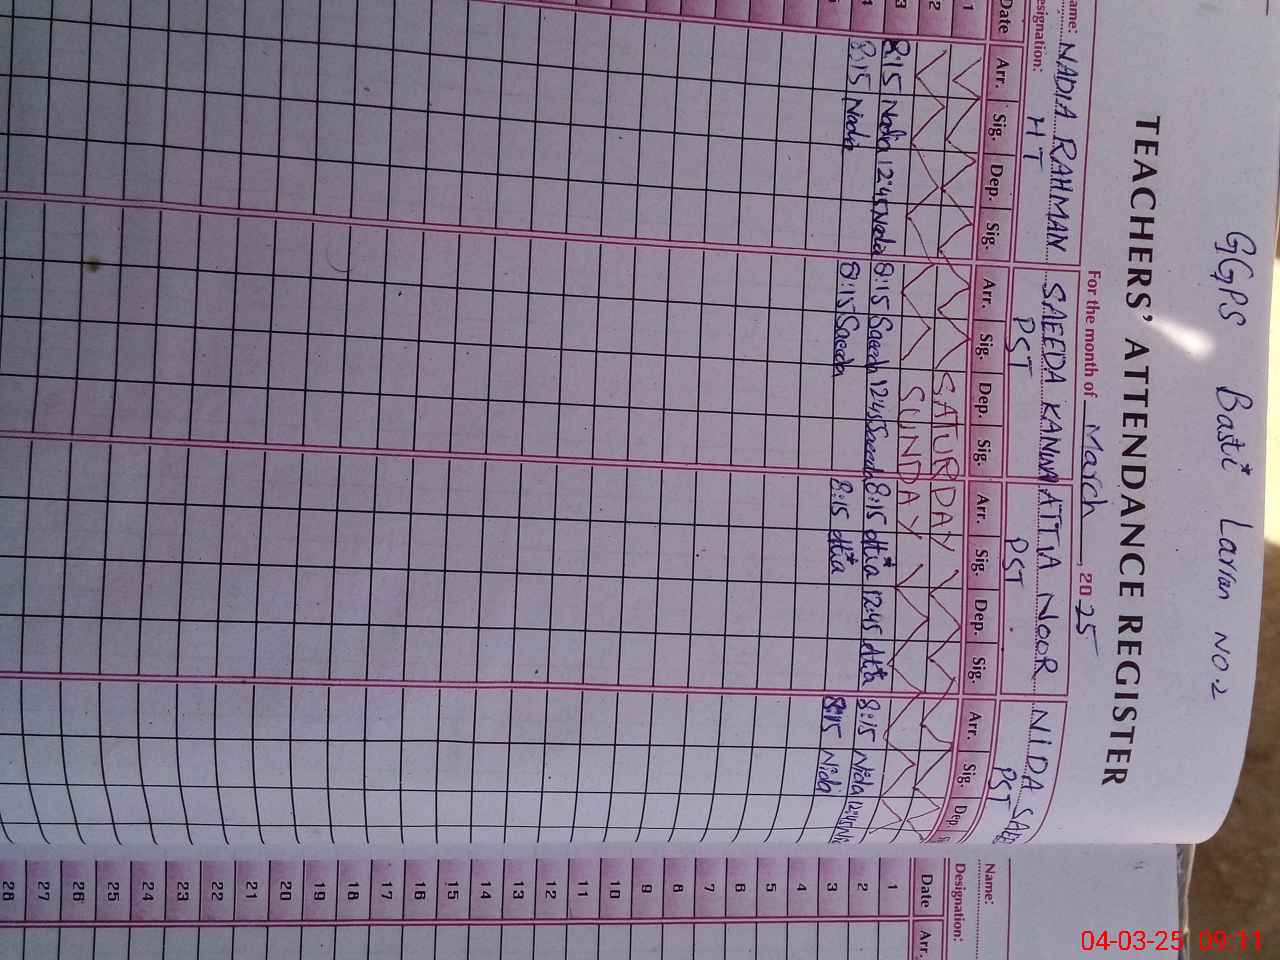 GGPS Basti Larran NO.2
TEACHERS' ATTENDANCE REGISTER
For the month of March, 2025
ame: NADIA RAHMAN SAEEDA KANWAL ATTIA NOOR NIDA SAEE
esignation: HT PST PST PST
Date Arr. Sig. Dep. Sig. Arr. Sig. Dep. Sig. Arr. Sig. Dep. Sig. Arr. Sig. Dep. S
1 SATURDAY
2 SUNDAY
3 8:15 Nadia 12:45 Nadia 8:15 Saeeda 12:45 Saeeda 8:15 Attia 12:45 Attia 8:15 Nida 12:45 Ni
4 8:15 Nadia 8:15 Saeeda 8:15 Attia 8:15 Nida
Name:
Designation:
Date Arr.
1
2
3
4
5
6
7
8
9
10
11
12
13
14
15
16
17
18
19
20
21
22
23
24
25
26
27
28
04-03-25 09:11